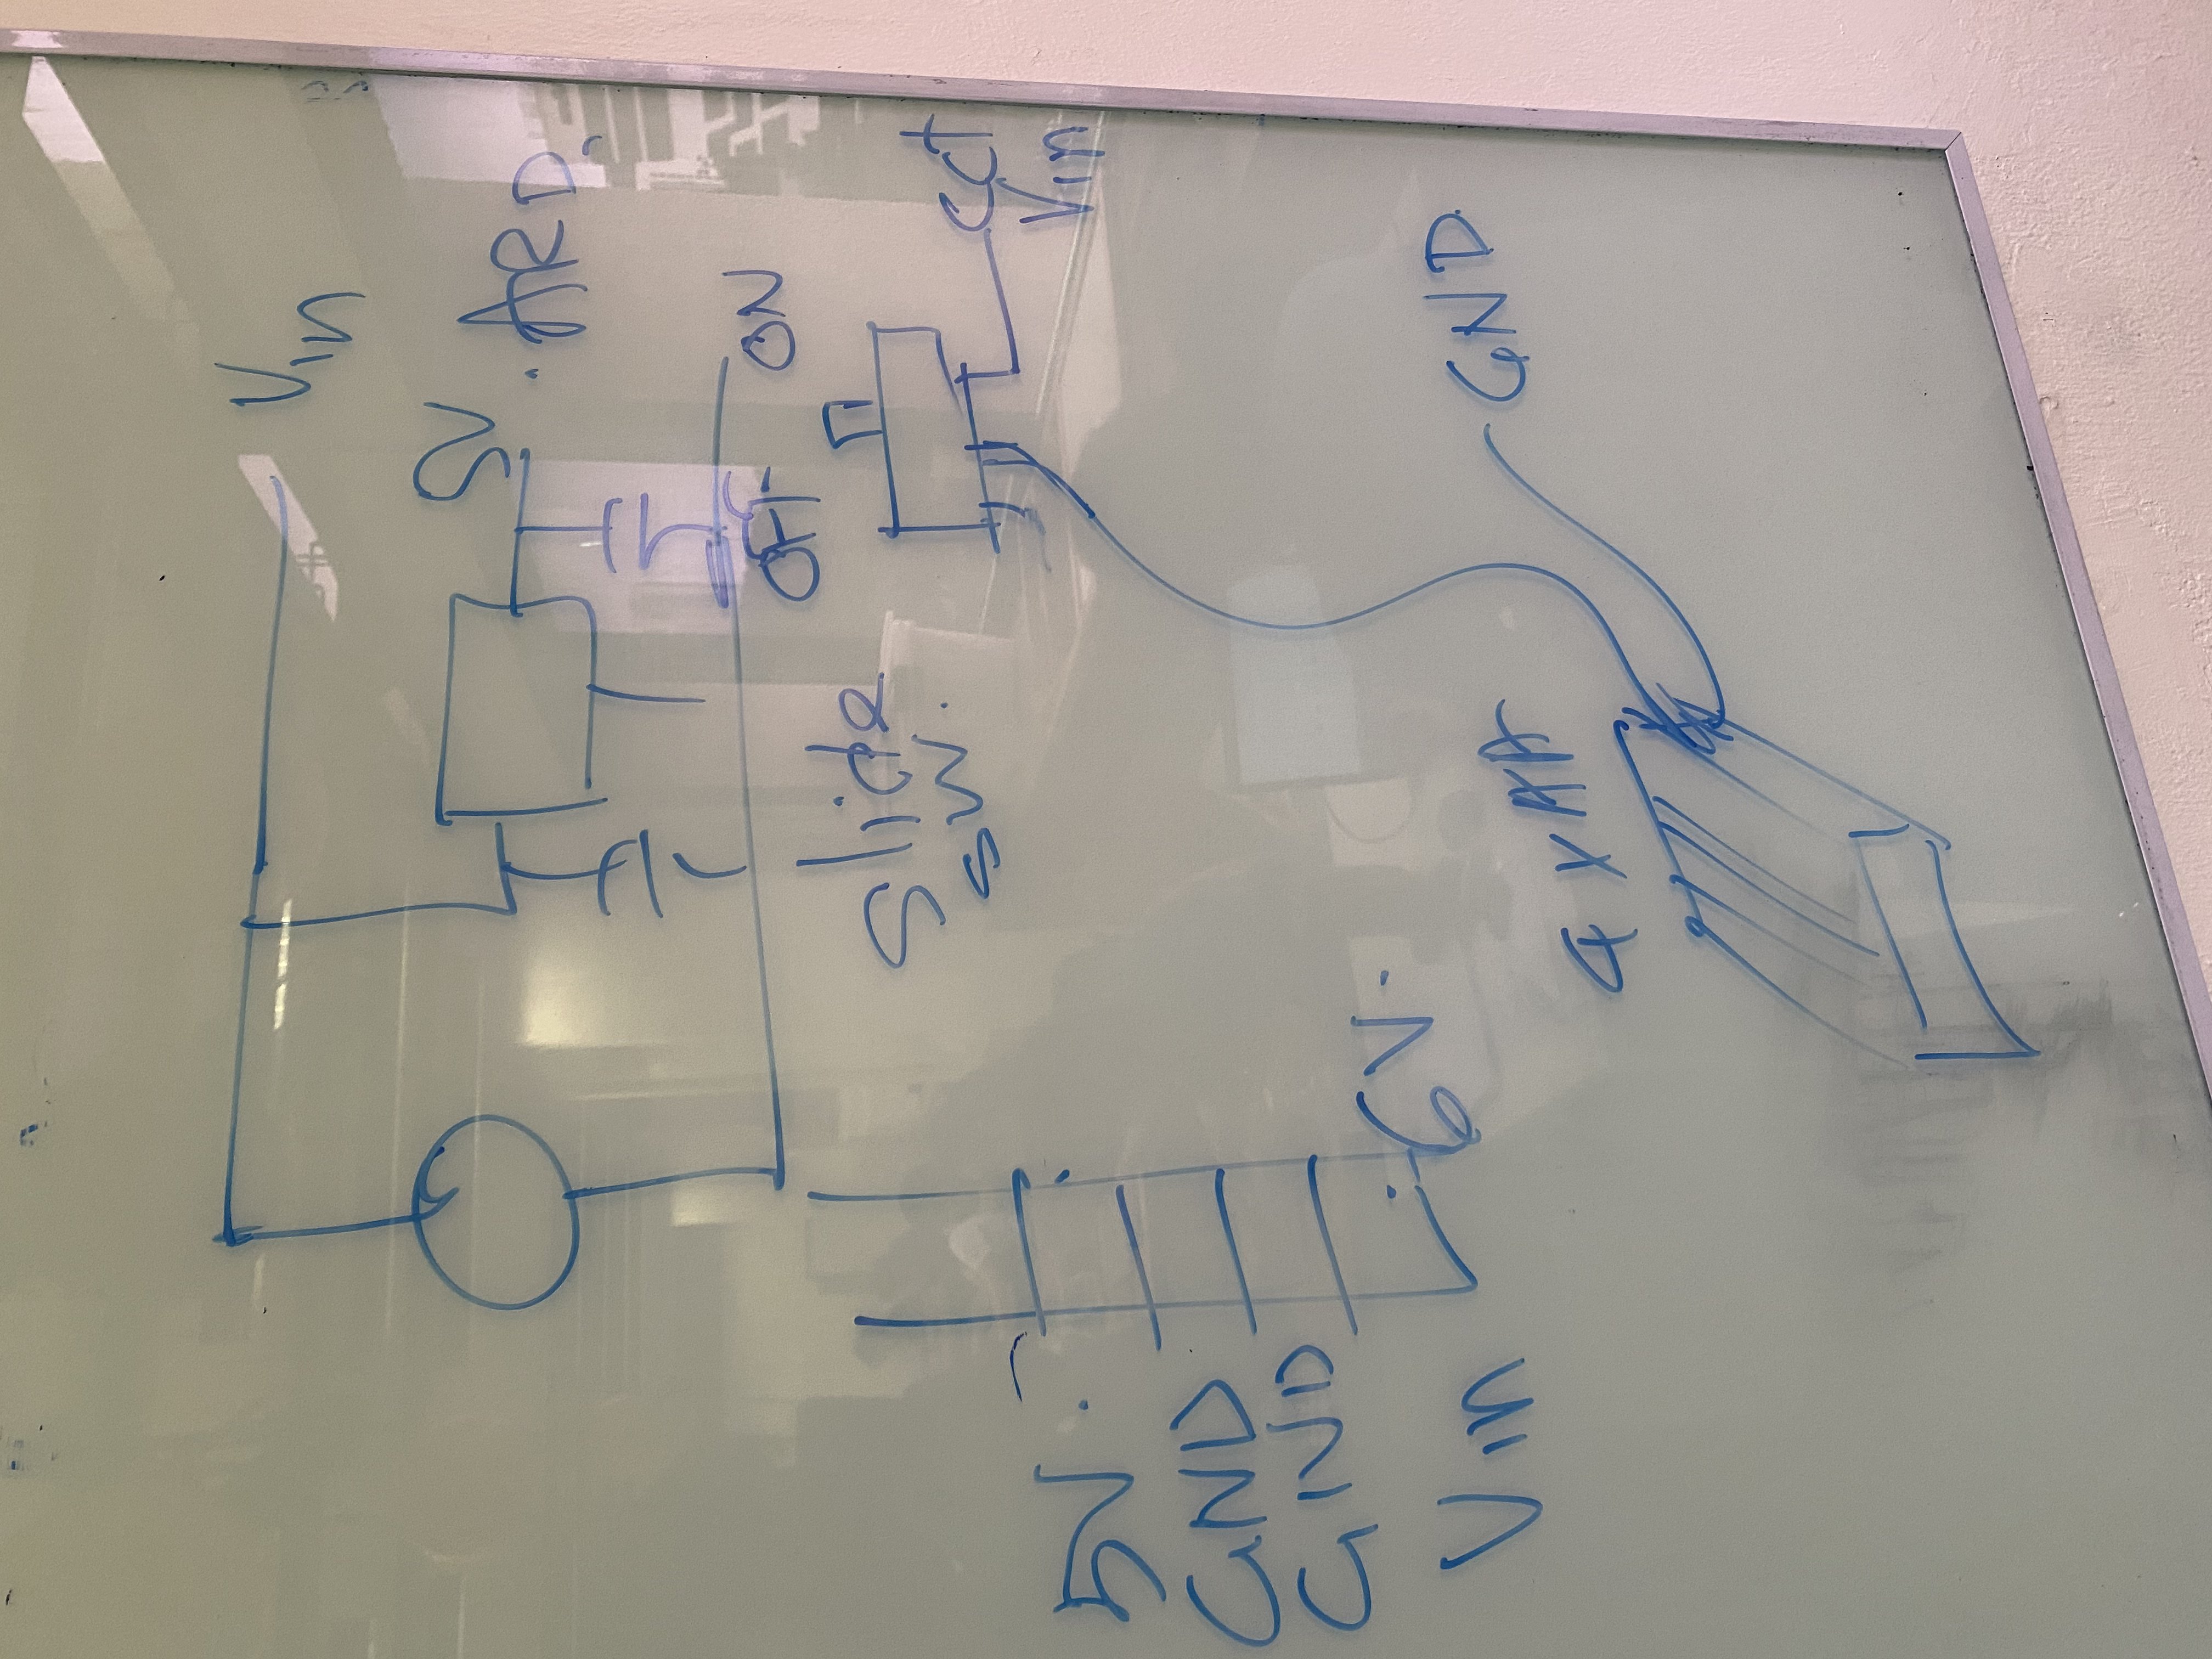 Vin
5V
. ARD.
OFF ON
Slide
SW.
CCT
Vin
5V.
GND
GND
6V.
Vin
4 x AA
GND